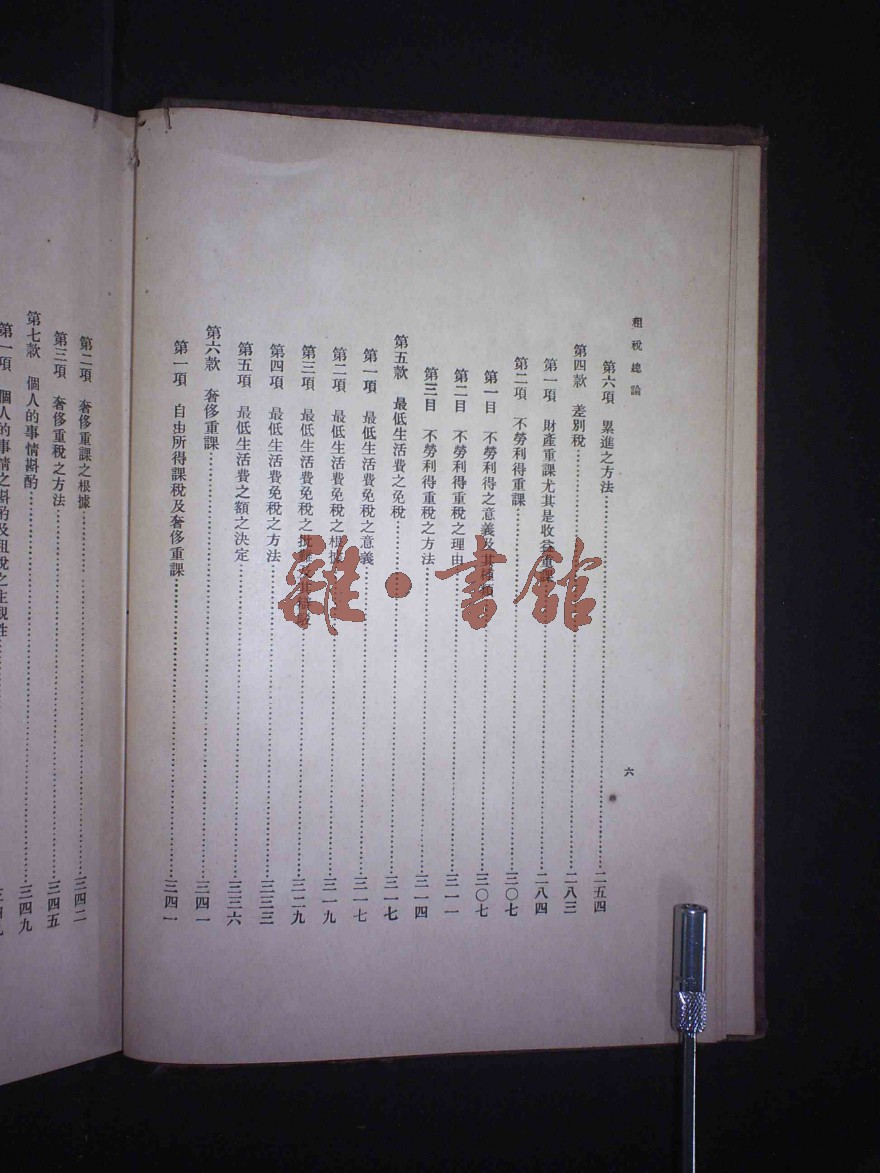 租稅總論
六
第六項 累進之方法……二五四
第四款 差別稅……二八三
第一項 財產重課尤其是收益重課……二八四
第二項 不勞利得重課……三〇七
第一目 不勞利得之意義及其種類……三〇七
第二目 不勞利得重稅之理由……三一一
第三目 不勞利得重稅之方法……三一四
第五款 最低生活費之免稅……三一七
第一項 最低生活費免稅之意義……三一七
第二項 最低生活費免稅之根據……三一九
第三項 最低生活費免稅之批……三二九
第四項 最低生活費免稅之方法……三三三
第五項 最低生活費之額之決定……三三六
第六款 奢侈重課……三四一
第一項 自由所得課稅及奢侈重課……三四一
第二項 奢侈重課之根據……三四二
第三項 奢侈重稅之方法……三四五
第七款 個人的事情斟酌……三四九
第一項 個人的事情之斟酌及租稅之主觀性
雜·書館